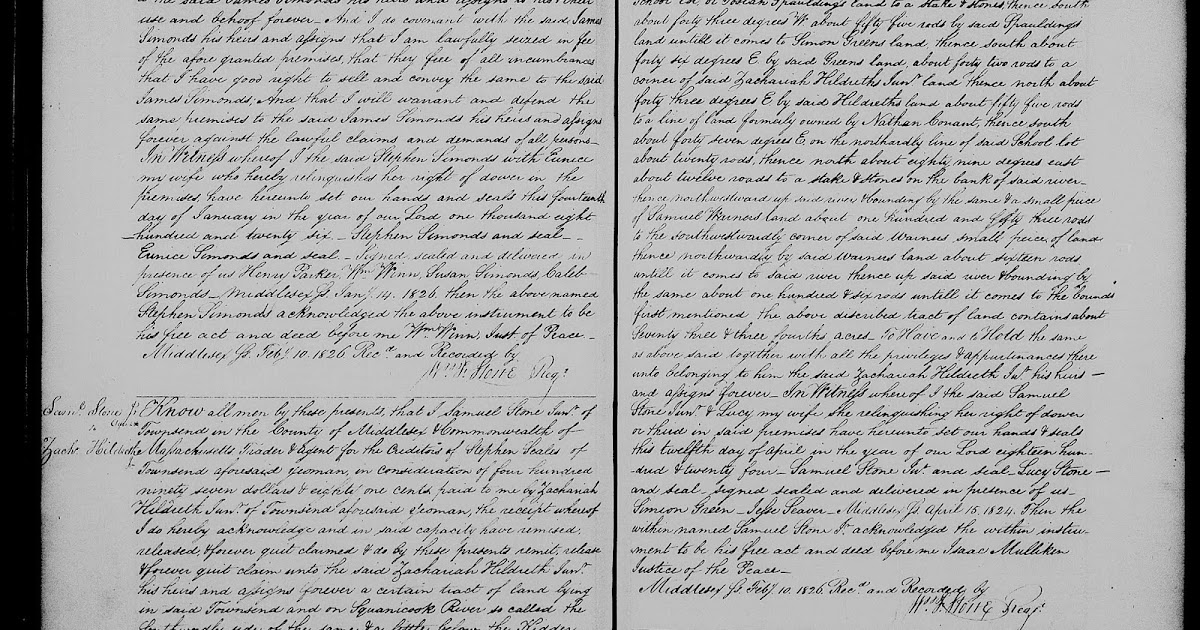 to the said James Simonds his heirs and assigns to his & their
use and behoof forever - And I do covenant with the said James
Simonds his heirs and assigns that I am lawfully seized in fee
of the afore granted premises, that they free of all incumbrances
that I have good right to sell and convey the same to the said
James Simonds; And that I will warrant and defend the
same premises to the said James Simonds his heirs and assigns
forever against the lawful claims and demands of all persons -
In Witness whereof I the said Stephen Simonds with Eunice
my wife who hereby relinquishes her right of dower in the
premises have hereunto set our hands and seals this fourteenth
day of January in the year of our Lord one thousand eight
hundred and twenty six - Stephen Simonds and seal -
Eunice Simonds and seal - Signed sealed and delivered in
presence of us Henry Parker, Wm Winn, Susan Simonds, Caleb
Simonds - Middlesex Ss. Jany. 14. 1826. then the above named
Stephen Simonds acknowledged the above instrument to be
his free act and deed before me Wm Winn, Just. of Peace -
Middlesex Ss. Feby. 10. 1826 Recd. and Recorded by
Wm F Stone Regr.
Saml. Stone Jr.
to
Zach. Hildreth
Know all men by these presents, that I Samuel Stone Junr. of
Townsend in the County of Middlesex & Commonwealth of
Massachusetts Trader & Agent for the Creditors of Stephen Scales of
Townsend aforesaid yeoman, in consideration of four hundred
ninety seven dollars & eighty one cents paid to me by Zachariah
Hildreth Junr. of Townsend aforesaid yeoman, the receipt whereof
I do hereby acknowledge and in said capacity have remised
released, & forever quit claimed & do by these presents remit, release
& forever quit claim unto the said Zachariah Hildreth Junr.
his heirs and assigns forever a certain tract of land lying
in said Townsend and on Squanicook River so called the
Southwardly side of the same & a little below the Kidder
School Lot or Josiah Spauldings land to a stake & stones, thence south
about forty three degrees W. about fifty five rods by said Spauldings
land untill it comes to Simon Greens land, thence south about
forty six degrees E. by said Greens land, about forty two rods to a
corner of said Zachariah Hildreths Junr. land thence north about
forty three degrees E by said Hildreths land about fifty five rods
to a line of land formerly owned by Nathan Conant, thence south
about forty seven degrees E, on the northardly line of said School lot
about twenty rods, thence north about eighty nine degrees east
about twelve roads to a stake & stones on the bank of said river -
thence northwestward up said river & bounding by the same & a small piece
of Samuel Warners land about one hundred and fifty three rods
to the southwestwardly corner of said Warners small peice of land
thence northwardly by said Warners land about sixteen rods
untill it comes to said river thence up said river & bounding by
the same about one hundred & six rods untill it comes to the bounds
first mentioned the above discribed tract of land contains about
Seventy three & three fourths acres - To Have and to Hold the same
as above said together with all the privileges & appurtinances there
unto belonging to him the said Zachariah Hildreth Junr. his heirs -
and assigns forever - In Witness whereof I the said Samuel
Stone Junr. & Lucy my wife she relinquishing her right of dower
or third in said premises have hereunto set our hands & seals
this twelfth day of april in the year of our Lord eighteen hun-
dred & twenty four - Samuel Stone Jnr. and seal - Lucy Stone -
and seal signed sealed and delivered in presence of us -
Simeon Green - Jesse Seaver - Middlesex Ss. April 15. 1824. Then the
within named Samuel Stone Jr. acknowledged the within instru-
ment to be his free act and deed before me Isaac Mulliken
Justice of the Peace -
Middlesex Ss. Feby. 10. 1826. Recd. and Recorded by
Wm F Stone Regr.